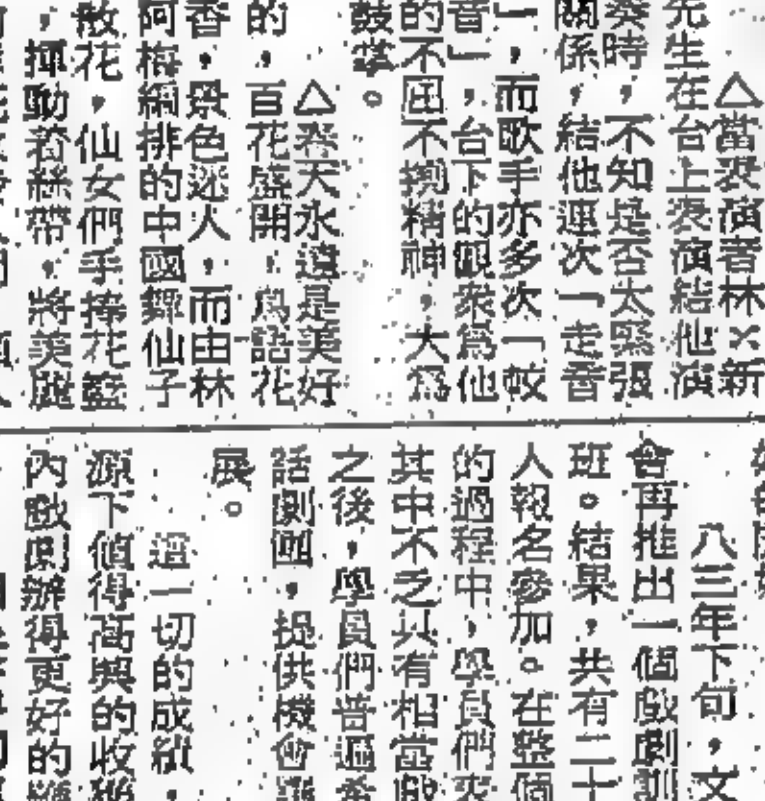 △當表演者林×新
先生在台上表演結他演
奏時，不知是否太緊張
關係，結他連次「走音
」，而歌手亦多次「蚊
音」，台下的觀衆爲他
的不屈不撓精神，大爲
鼓掌。
△春天永遠是美好
的，百花盛開，鳥語花
香，景色迷人，而由林
阿梅編排的中國舞仙子
散花，仙女們手捧花籃
，揮動着絲帶，將美麗
八三年下旬，文
會再推出一個戲劇訓
班。結果，共有二十
人報名參加。在整個
的過程中，學員們表
其中不乏具有相當戲
之後，學員們普遍希
話劇團，提供機會讓
展。
這一切的成績，
源下值得高興的收穫
內戲劇辦得更好的